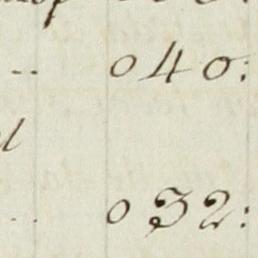 .. 040:
.. 032: